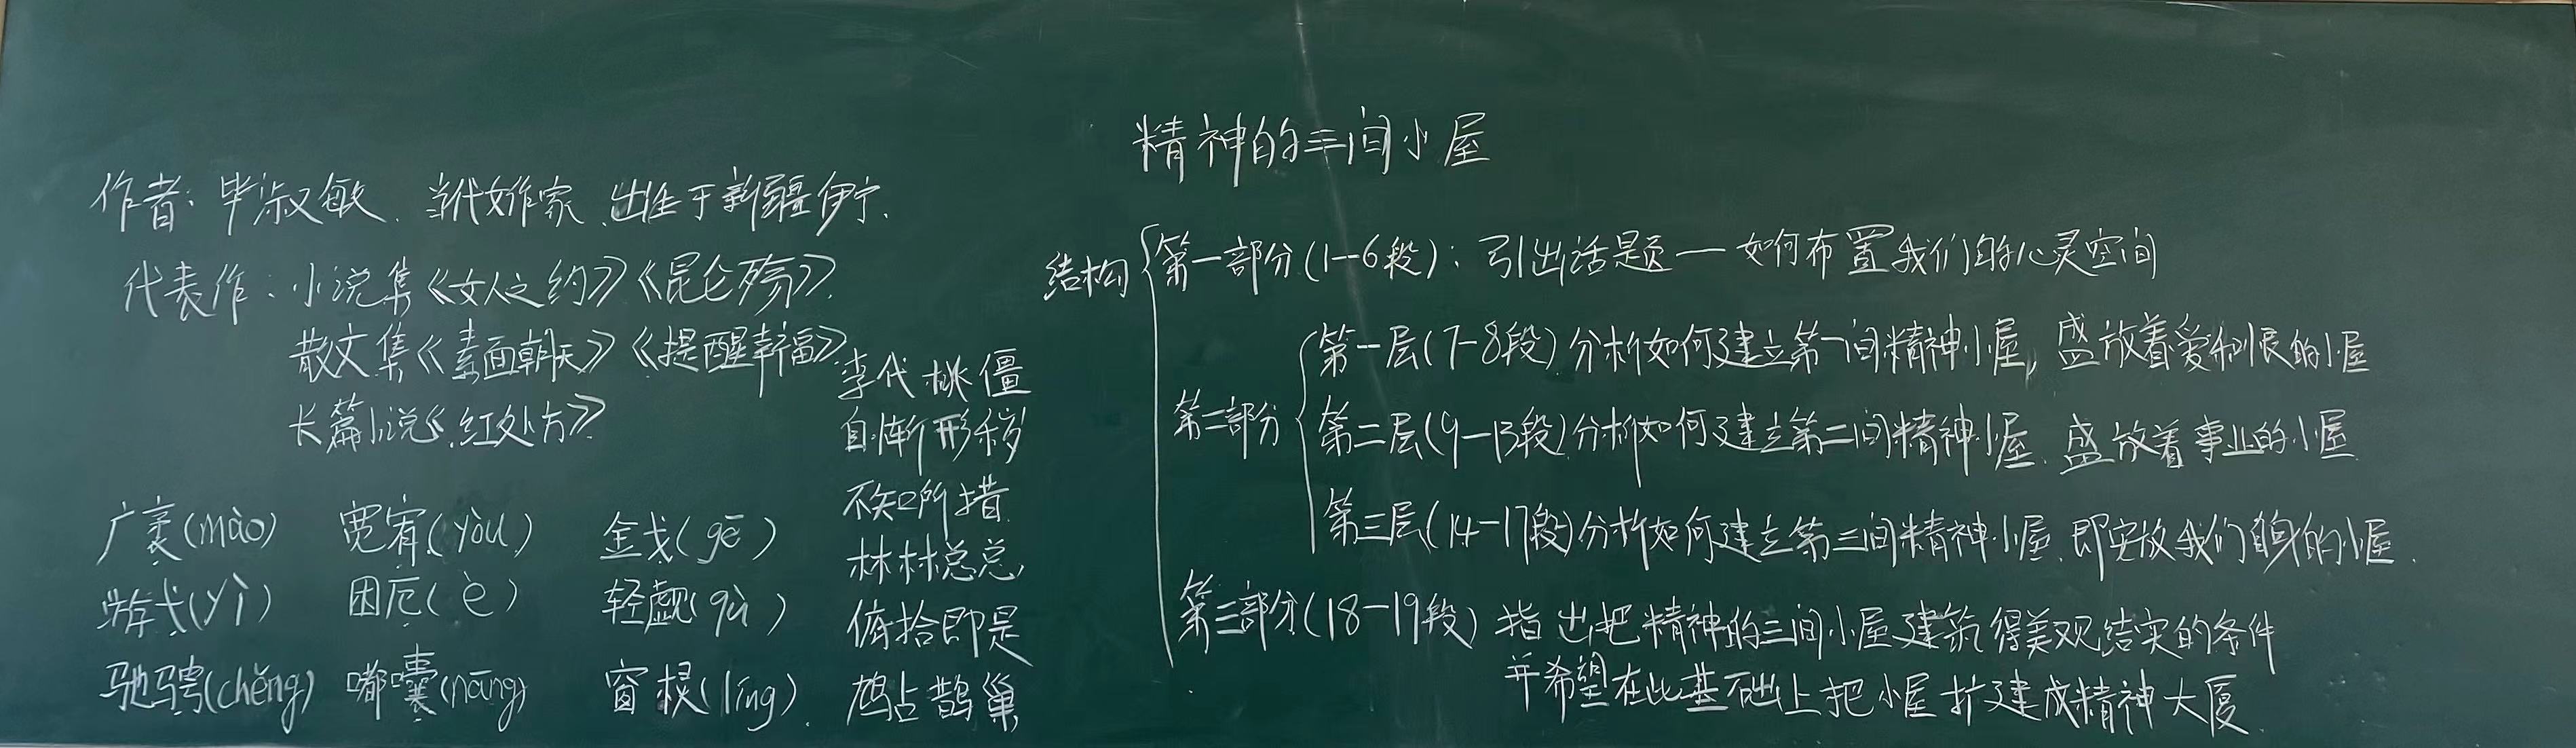 精神的三间小屋
作者：毕淑敏、当代女作家、出生于新疆伊宁.
代表作：小说集《女人之约》《昆仑殇》.
散文集《素面朝天》《提醒幸福》
长篇小说《红处方》
广袤(mào) 宽宥(yòu) 金戈(gē)
游弋(yì) 困厄(è) 轻觑(qù)
驰骋(chěng) 嘟囔(nāng) 窗棂(líng)
李代桃僵
自惭形秽
不知所措
林林总总
俯拾即是
鸠占鹊巢
结构
第一部分(1—6段)：引出话题—如何布置我们的心灵空间
第二部分
第一层(7-8段)分析如何建立第一间精神小屋，盛放着爱和恨的小屋
第二层(9-13段)分析如何建立第二间精神小屋、盛放着事业的小屋
第三层(14-17段)分析如何建立第三间精神小屋、即安放我们自身的小屋.
第三部分(18-19段) 指出把精神的三间小屋建筑得美观结实的条件
并希望在此基础上把小屋扩建成精神大厦.